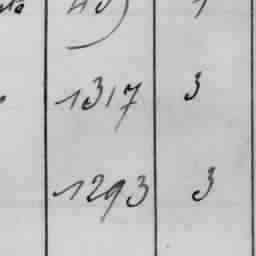 1317 3
1293 3